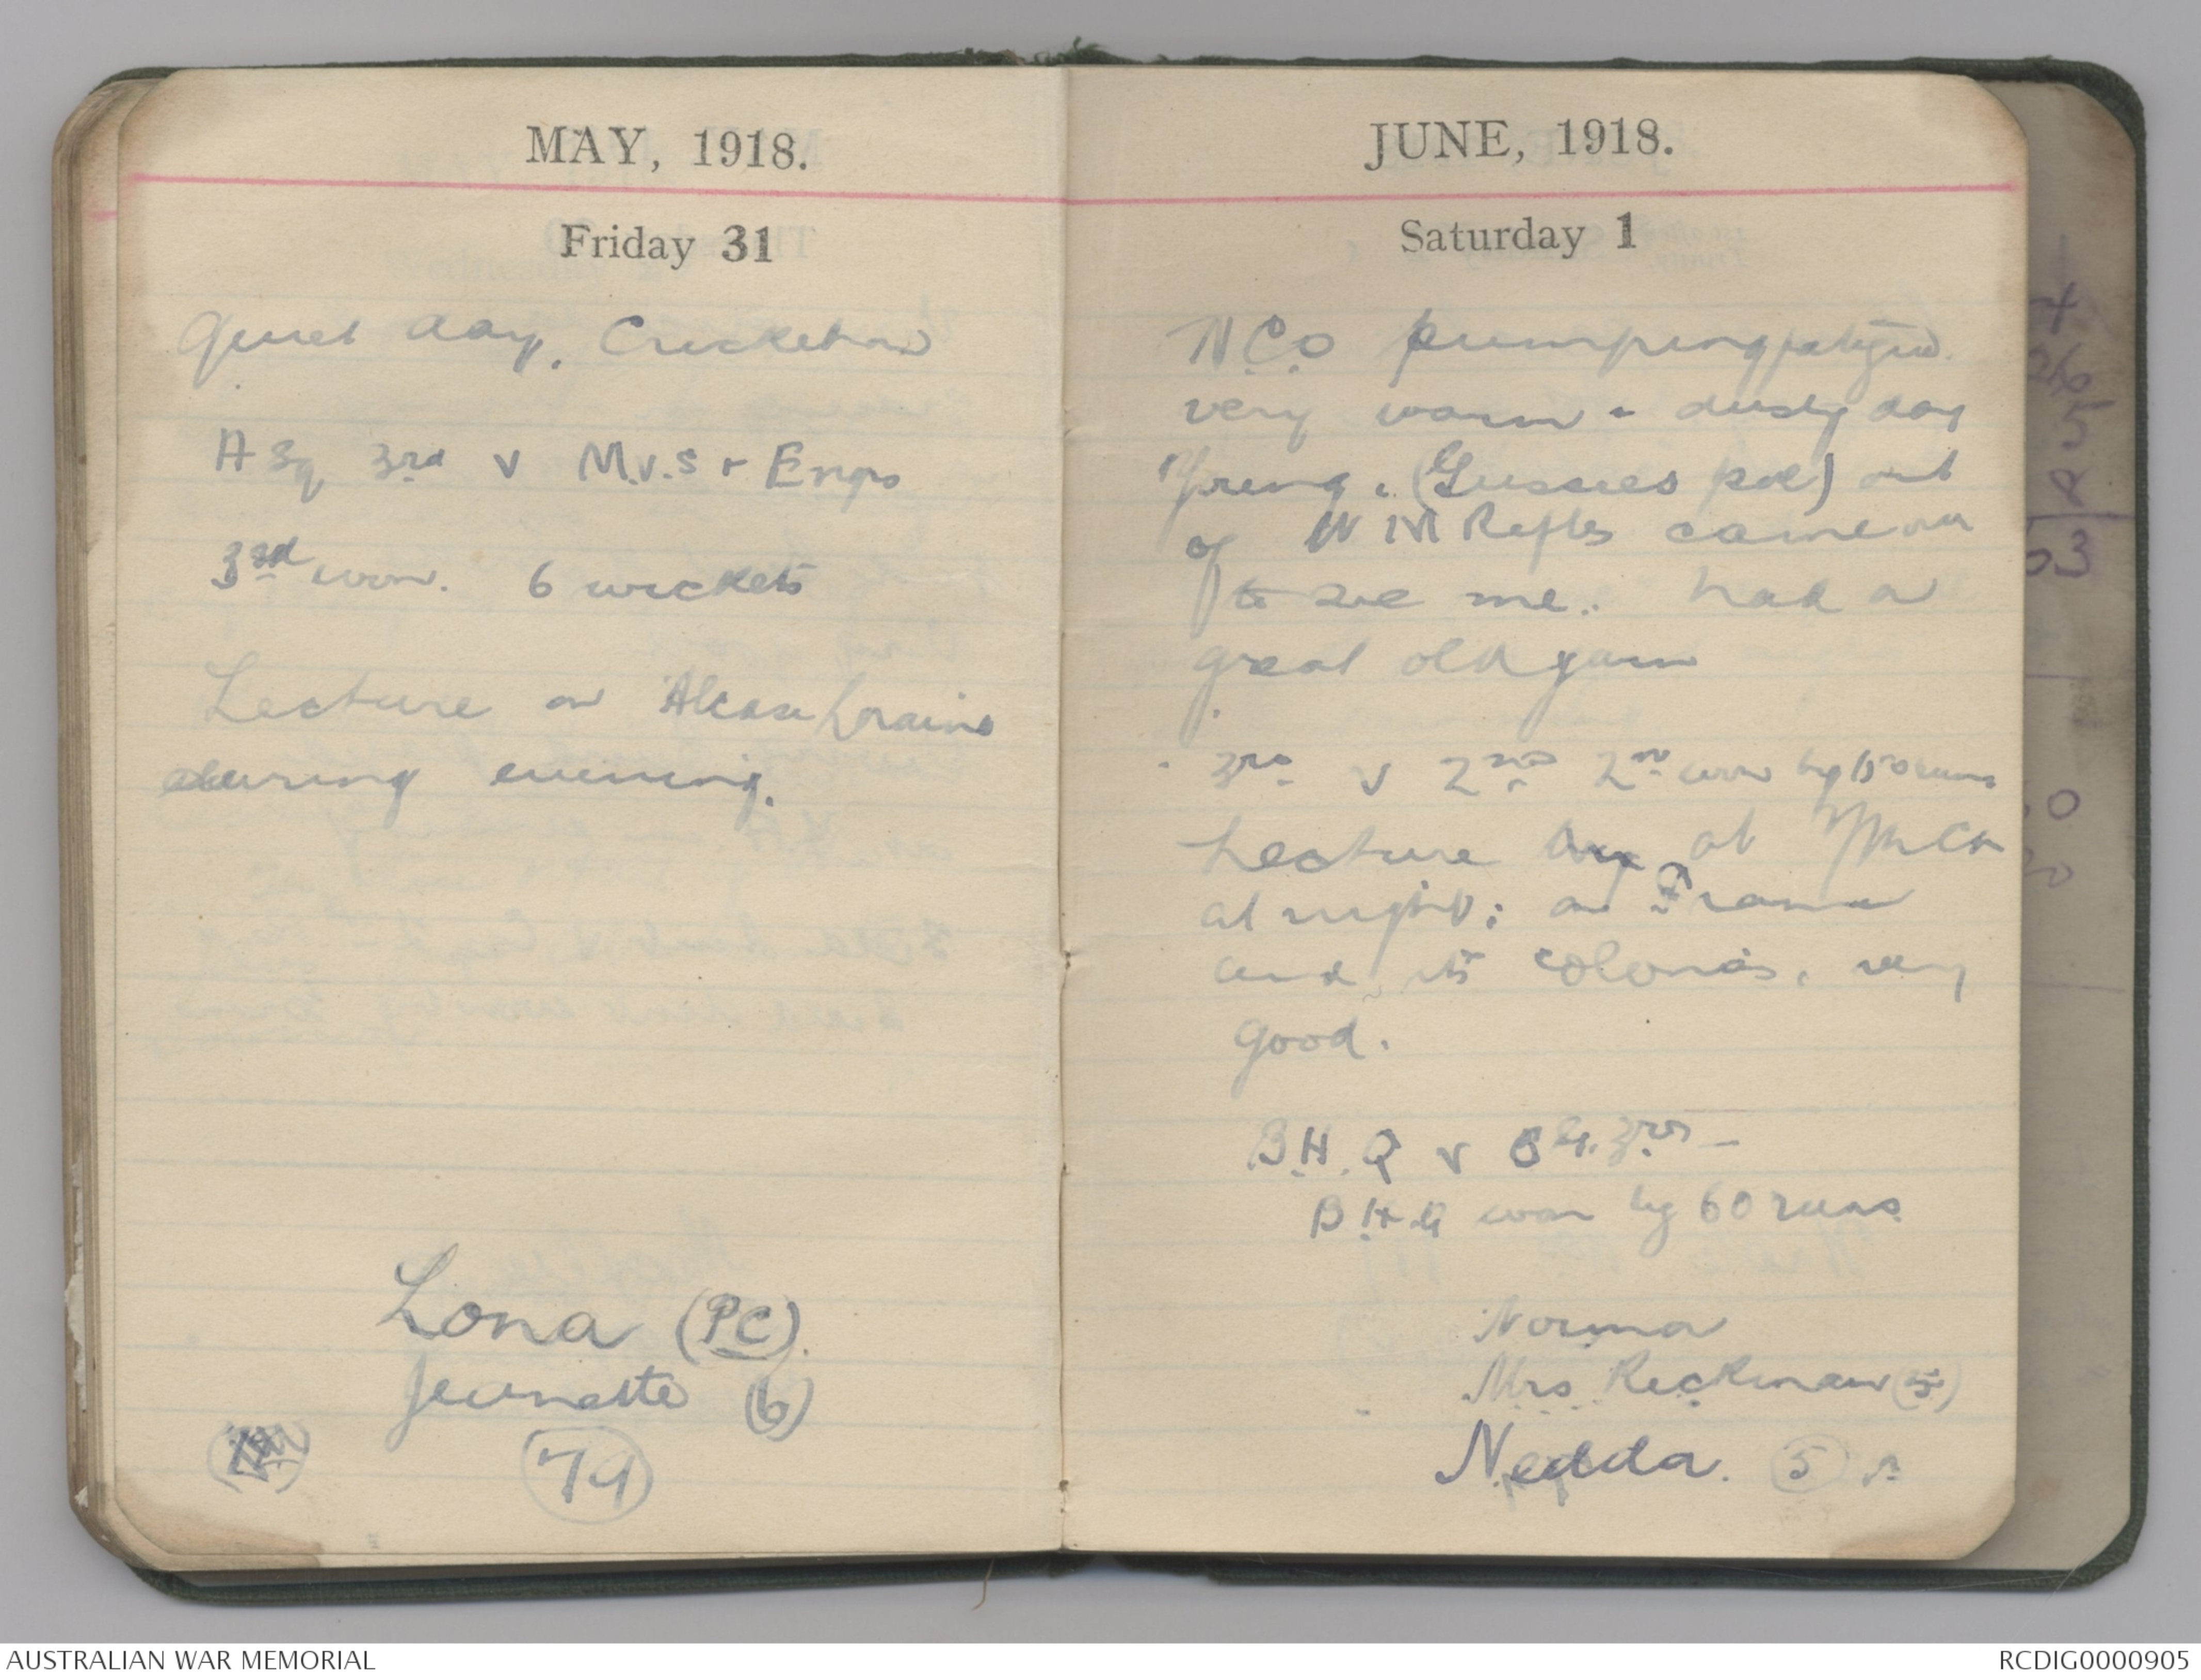 MAY, 1918.
Friday 31
Quiet day. Cricket
A Sq 3rd v M.V.S + Engrs
3rd won. 6 wickets
Lecture on Alcase Loraine
during evening.
Lona (PC).
Jeanette (6)
79
JUNE, 1918.
Saturday 1
NCO pumping
very warm + dusty day
Young. (Gussies pal) out
of N M Refles came over
to see me.. had a
great old yarn
3rd v 2nd 2nd won by runs
Lecture at YMCA
at night; on France
and its colonies, very
good.
B.H.Q v 3rd -
B.H.Q won by 60 runs
Norma
Mrs Reckman (5)
Nedda. 5
4
26
5
2
53
AUSTRALIAN WAR MEMORIAL
RCDIG0000905